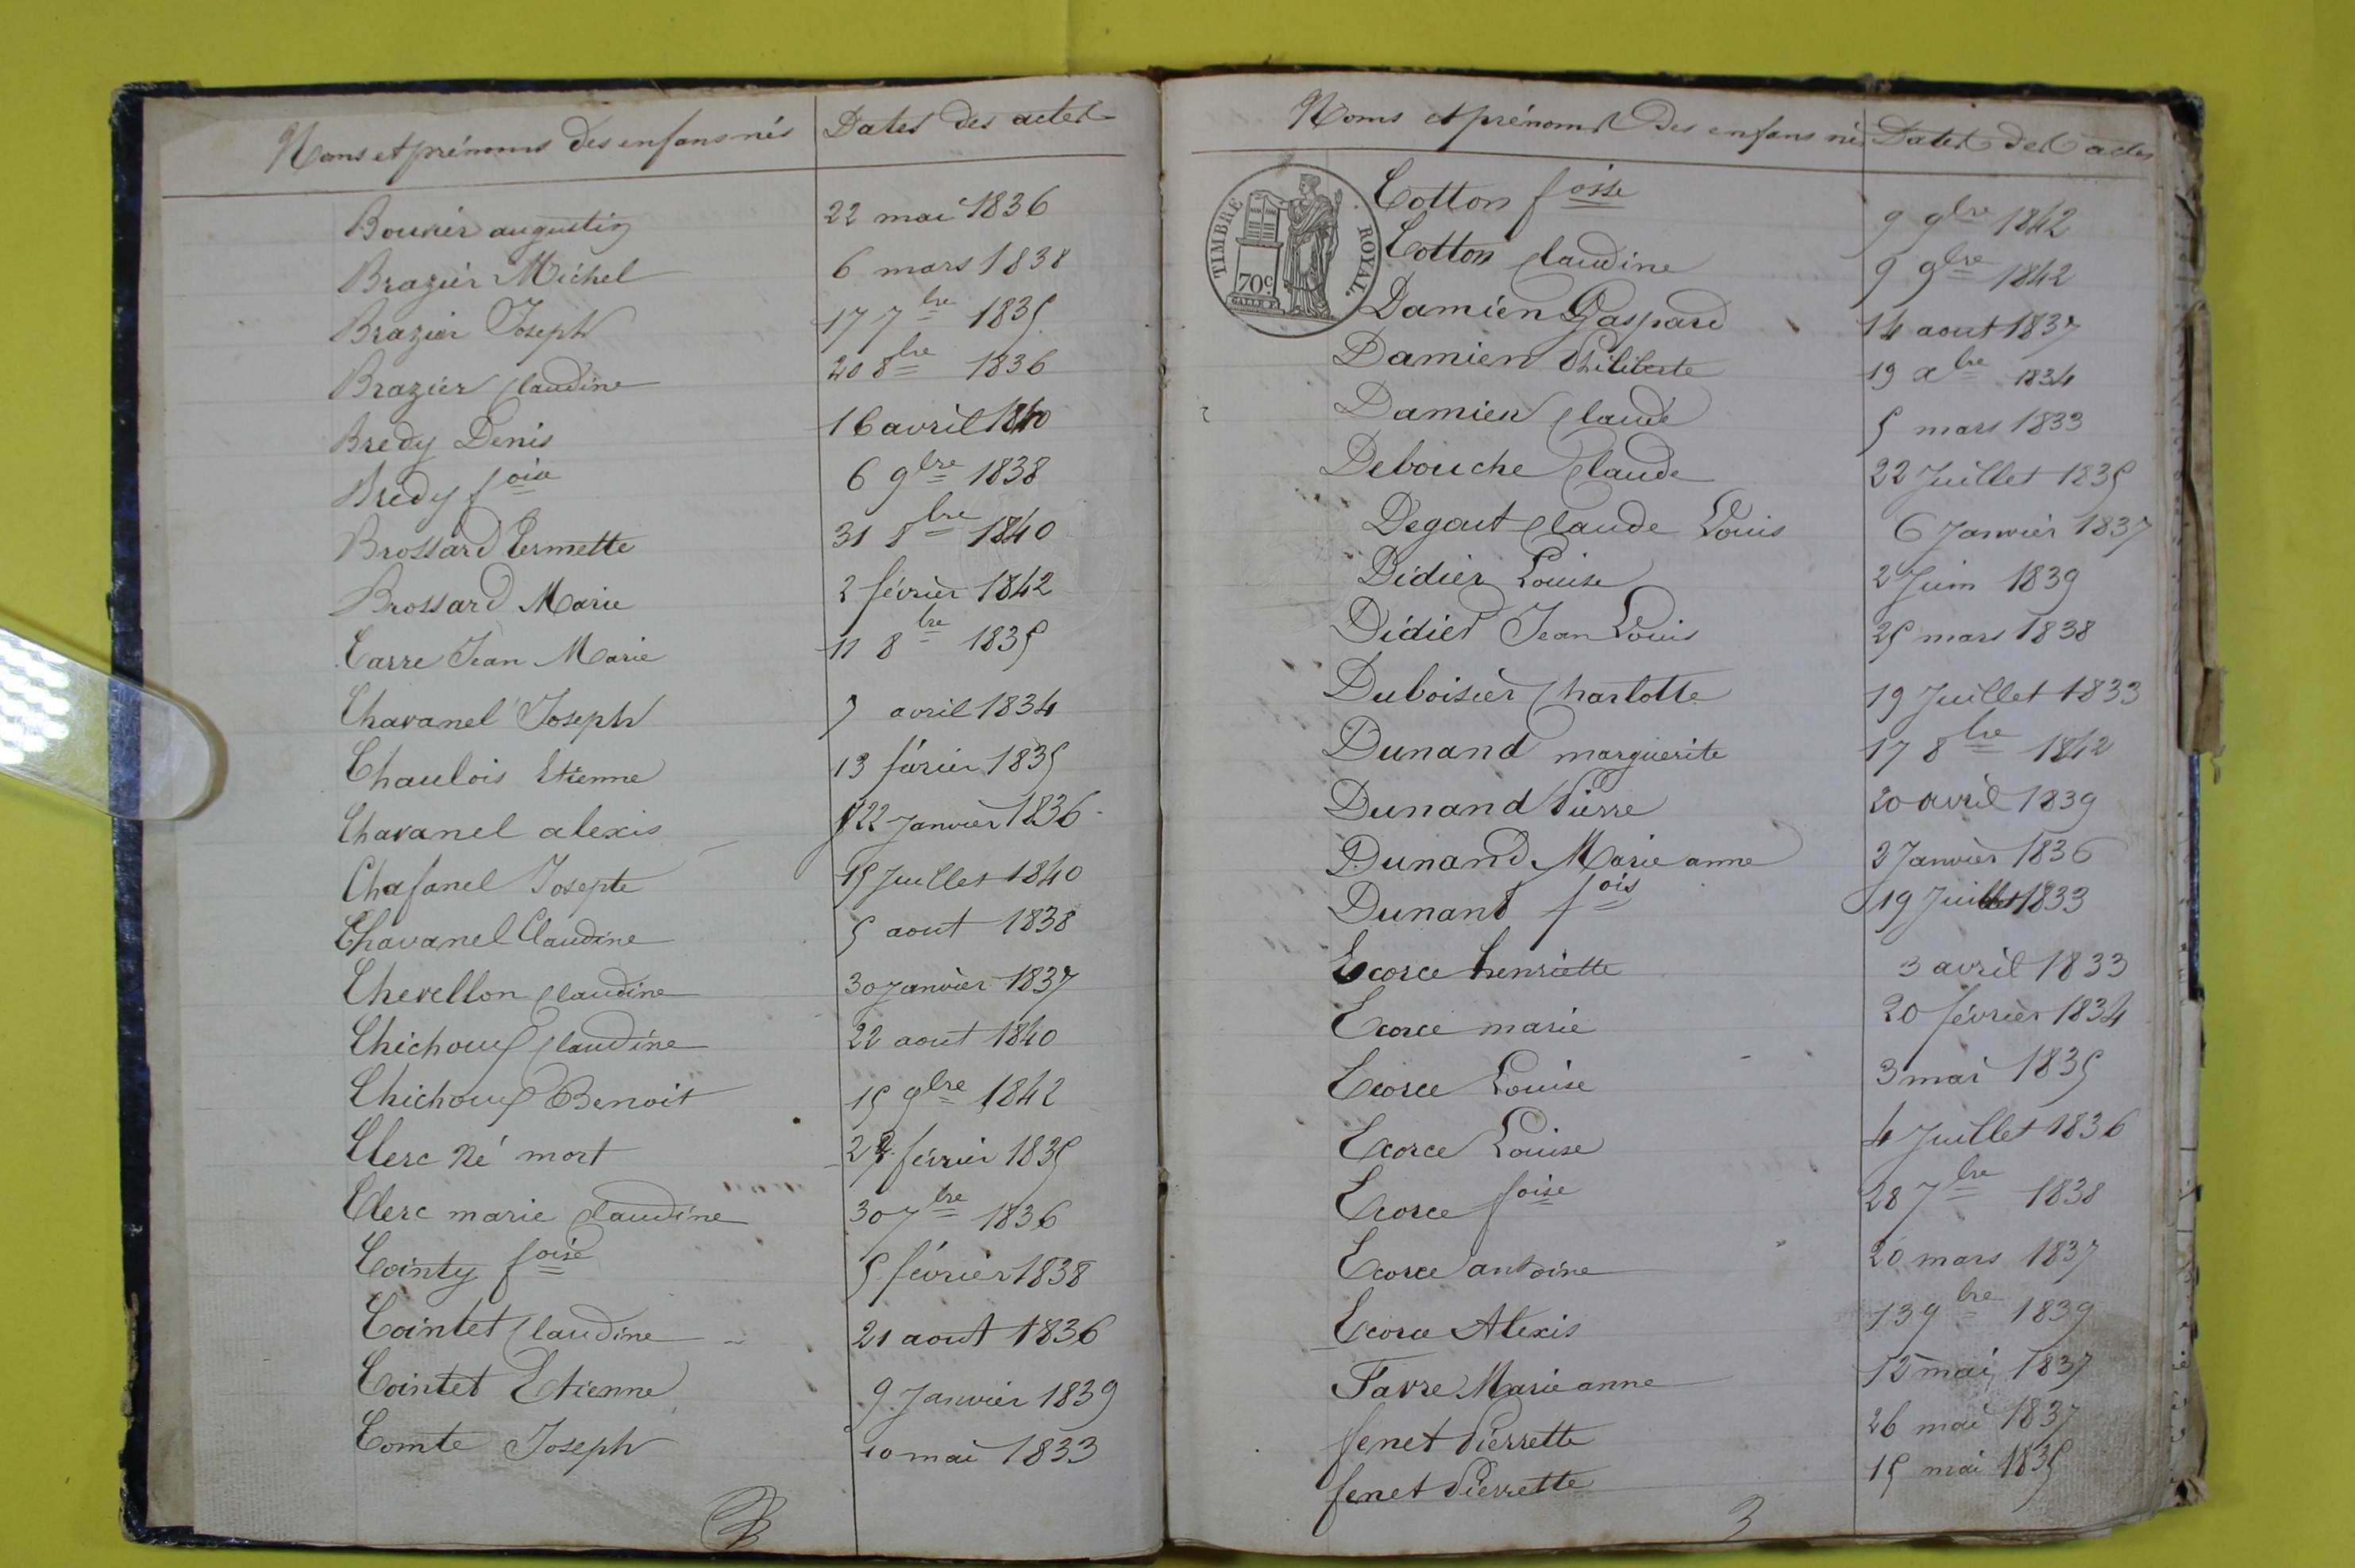 Noms et prénoms des enfans nés Dates des actes
Bouvier augustin 22 mai 1836
Brazier Michel 6 mars 1838
Brazier Joseph 17 7bre 1835
Brazier Claudine 20 8bre 1836
Bredy Denis 16 avril 1840
Bredy foise 6 9bre 1838
Brossard Permette 31 8bre 1840
Brossard Marie 2 févrièr 1842
Carre Jean Marie 11 8bre 1835
Chavanel Joseph 7 avril 1834
Chaulois Etienne 13 févrièr 1835
Chavanel alexis 22 Janvièr 1836
Chafanel Josepte 15 Juillet 1840
Chavanel Claudine 5 aout 1838
Chevellon Claudine 30 Janvièr 1837
Chichoux Claudine 22 aout 1840
Chichoux Benoit 15 9bre 1842
Clerc Né mort février 1835
Clerc marie Claudine 30 7bre 1836
Cointy foise 5 févrièr 1838
Cointet Claudine 21 aout 1836
Cointet Etienne 9 Janvièr 1839
Comte Joseph 10 mai 1833
Noms et prénoms des enfans nés Dates des actes
TIMBRE ROYAL.
70c.
Cotton foise 9 9bre 1842
Cotton Claudine 9 9bre 1842
Damien Gaspard 14 aout 1837
Damien Philiberte 19 xbre 1834
Damien Claude 5 mars 1833
Debouche Claude 22 Juillet 1835
Degout Claude Louis 6 Janvièr 1837
Didier Louise 2 Juin 1839
Didier Jean Louis 25 mars 1838
Duboisièr Charlotte 19 Juillet 1833
Dunand marguerite 17 8bre 1842
Dunand Pierre 20 avril 1839
Dunand Marie anne 2 Janvièr 1836
Dunand fois 19 Juillet 1833
Ecorce henriette 3 avril 1833
Ecorce marie 20 févrièr 1834
Ecorce Louise 3 mai 1835
Ecorce Louise 4 Juillet 1836
Ecorce foise 28 7bre 1838
Ecorce antoine 20 mars 1837
Ecorce Alexis 13 9bre 1839
Favre Marie anne 15 mai 1837
fenet Pierrette 26 mai 1837
fenet Pierrette 15 mai 1835
3